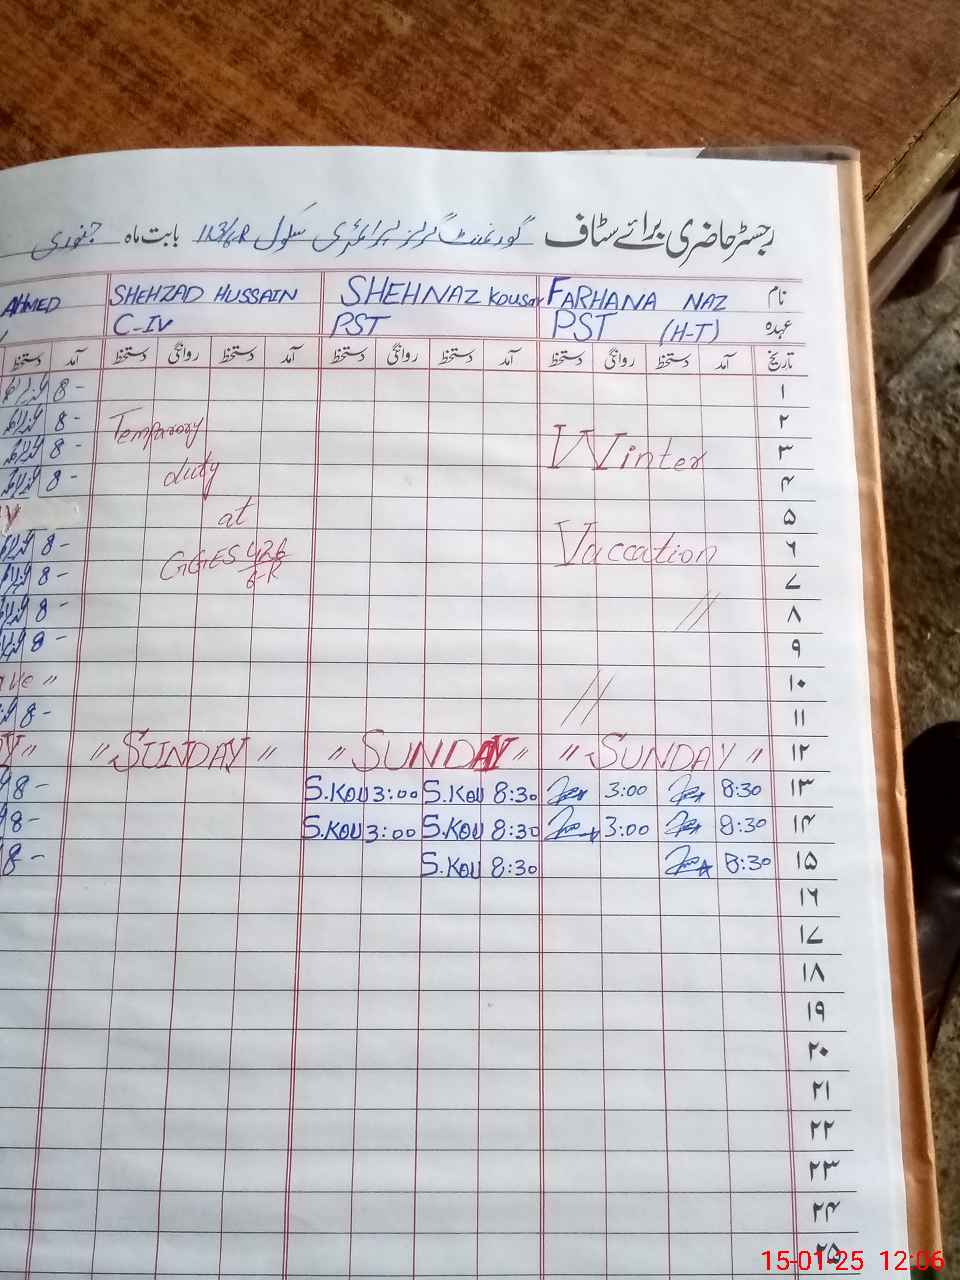 رجسٹر حاضری برائے سٹاف گورنمنٹ گرلز پرائمری سکول 113/6R بابت ماہ جنوری
نام FARHANA NAZ SHEHNAZ Kousar SHEHZAD HUSSAIN AHMED
عہدہ PST (H-T) PST C-IV
تاریخ آمد دستخط روانگی دستخط آمد دستخط روانگی دستخط آمد دستخط روانگی دستخط آمد دستخط
۱ 8 -
۲ Temparory 8 -
۳ Winter 8 -
۴ duty 8 -
۵ at
۶ Vaccation GGES 426/6-R 8 -
۷ 8 -
۸ " 8 -
۹ 8 -
۱۰ " "
۱۱ 8 -
۱۲ " SUNDAY " " SUNDAY " " SUNDAY " "
۱۳ 8:30 3:00 8:30 S.KOU 3:00 S.KOU 8 -
۱۴ 8:30 3:00 8:30 S.KOU 3:00 S.KOU 8 -
۱۵ 8:30 8:30 S.KOU 8 -
۱۶
۱۷
۱۸
۱۹
۲۰
۲۱
۲۲
۲۳
۲۴
۲۵
15-01-25 12:06